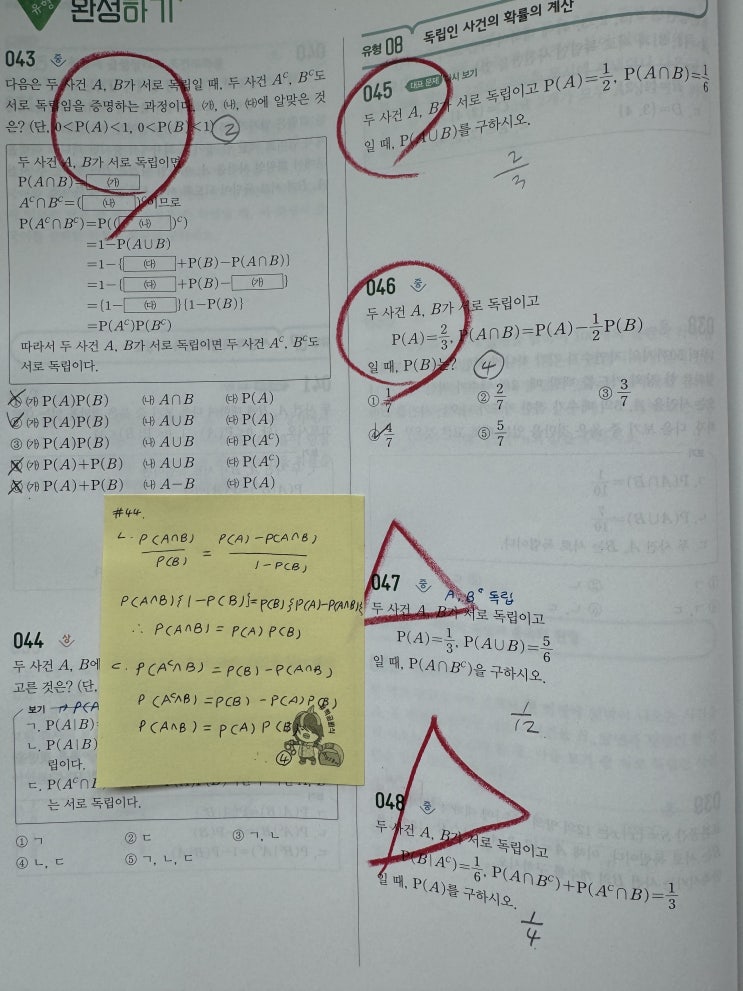 유형
완성하기
043 중
다음은 두 사건 A, B가 서로 독립일 때, 두 사건 Aᶜ, Bᶜ도
서로 독립임을 증명하는 과정이다. ㈎, ㈏, ㈐에 알맞은 것
은? (단, 0<P(A)<1, 0<P(B)<1) ②
두 사건 A, B가 서로 독립이면
P(A∩B)=㈎
Aᶜ∩Bᶜ=(㈏)ᶜ이므로
P(Aᶜ∩Bᶜ)=P((㈏)ᶜ)
=1-P(A∪B)
=1-{㈐+P(B)-P(A∩B)}
=1-{㈐+P(B)-㈎}
={1-㈐}{1-P(B)}
=P(Aᶜ)P(Bᶜ)
따라서 두 사건 A, B가 서로 독립이면 두 사건 Aᶜ, Bᶜ도
서로 독립이다.
① ㈎ P(A)P(B) ㈏ A∩B ㈐ P(A)
② ㈎ P(A)P(B) ㈏ A∪B ㈐ P(A)
③ ㈎ P(A)P(B) ㈏ A∪B ㈐ P(Aᶜ)
④ ㈎ P(A)+P(B) ㈏ A∪B ㈐ P(Aᶜ)
⑤ ㈎ P(A)+P(B) ㈏ A-B ㈐ P(A)
#44.
ㄴ. P(A∩B)/P(B) = P(A)-P(A∩B)/1-P(B)
P(A∩B){1-P(B)}=P(B){P(A)-P(A∩B)}
∴ P(A∩B) = P(A)P(B)
ㄷ. P(Aᶜ∩B) = P(B)-P(A∩B)
P(Aᶜ∩B) = P(B) - P(A)P(B)
P(A∩B) = P(A) P(B)
∴ ④
044 상
두 사건 A, B에
고른 것은? (단,
보기 → P(A
ㄱ. P(A|B)
ㄴ. P(A|B)
립이다.
ㄷ. P(Aᶜ∩
는 서로 독립이다.
① ㄱ ② ㄷ ③ ㄱ, ㄴ
④ ㄴ, ㄷ ⑤ ㄱ, ㄴ, ㄷ
유형 08 독립인 사건의 확률의 계산
045 대표 문제 다시 보기
두 사건 A, B가 서로 독립이고 P(A)=1/2, P(A∩B)=1/6
일 때, P(A∪B)를 구하시오.
2/3
046 중
두 사건 A, B가 서로 독립이고
P(A)=2/3, P(A∩B)=P(A)-1/2P(B)
일 때, P(B)는? ④
① 1/7 ② 2/7 ③ 3/7
④ 4/7 ⑤ 5/7
047 중 A, Bᶜ 독립
두 사건 A, B가 서로 독립이고
P(A)=1/3, P(A∪B)=5/6
일 때, P(A∩Bᶜ)을 구하시오.
1/12
048 중
두 사건 A, B가 서로 독립이고
P(B|Aᶜ)=1/6, P(A∩Bᶜ)+P(Aᶜ∩B)=1/3
일 때, P(A)를 구하시오.
1/4